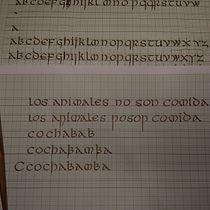 abcdefghijklmnopqrstuvw
a
abcdefghijklmnopqrstuvwxyz
abcdefghijklmnopqrstuvwxyz
los animales no son comida
los animales nosop comida
cochabab
cochabamba
Ccochabamba